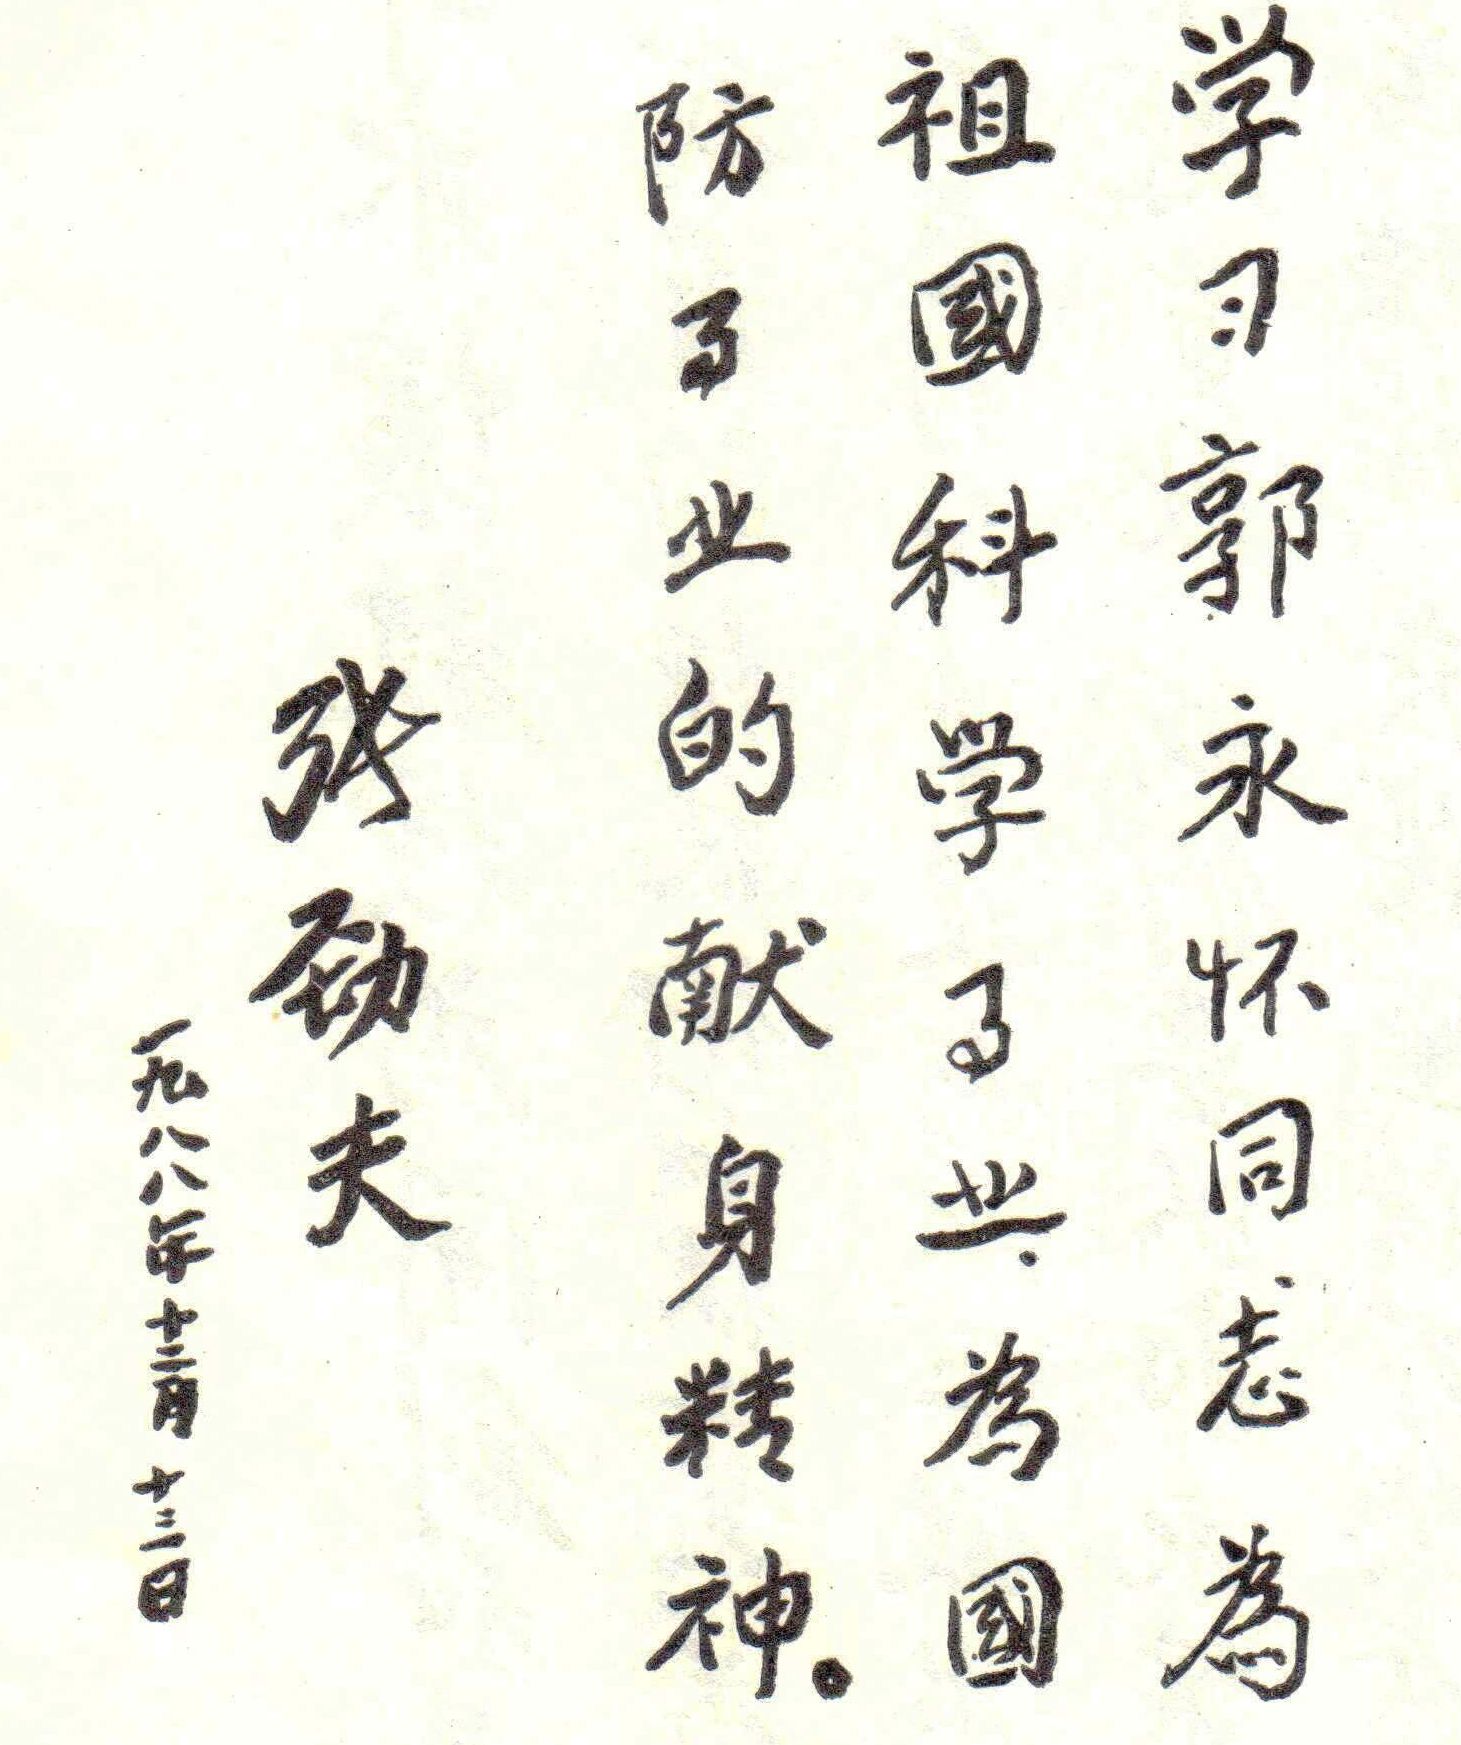 学习郭永怀同志為
祖國科学事业、為國
防事业的献身精神。
张劲夫
一九八八年十二月十三日